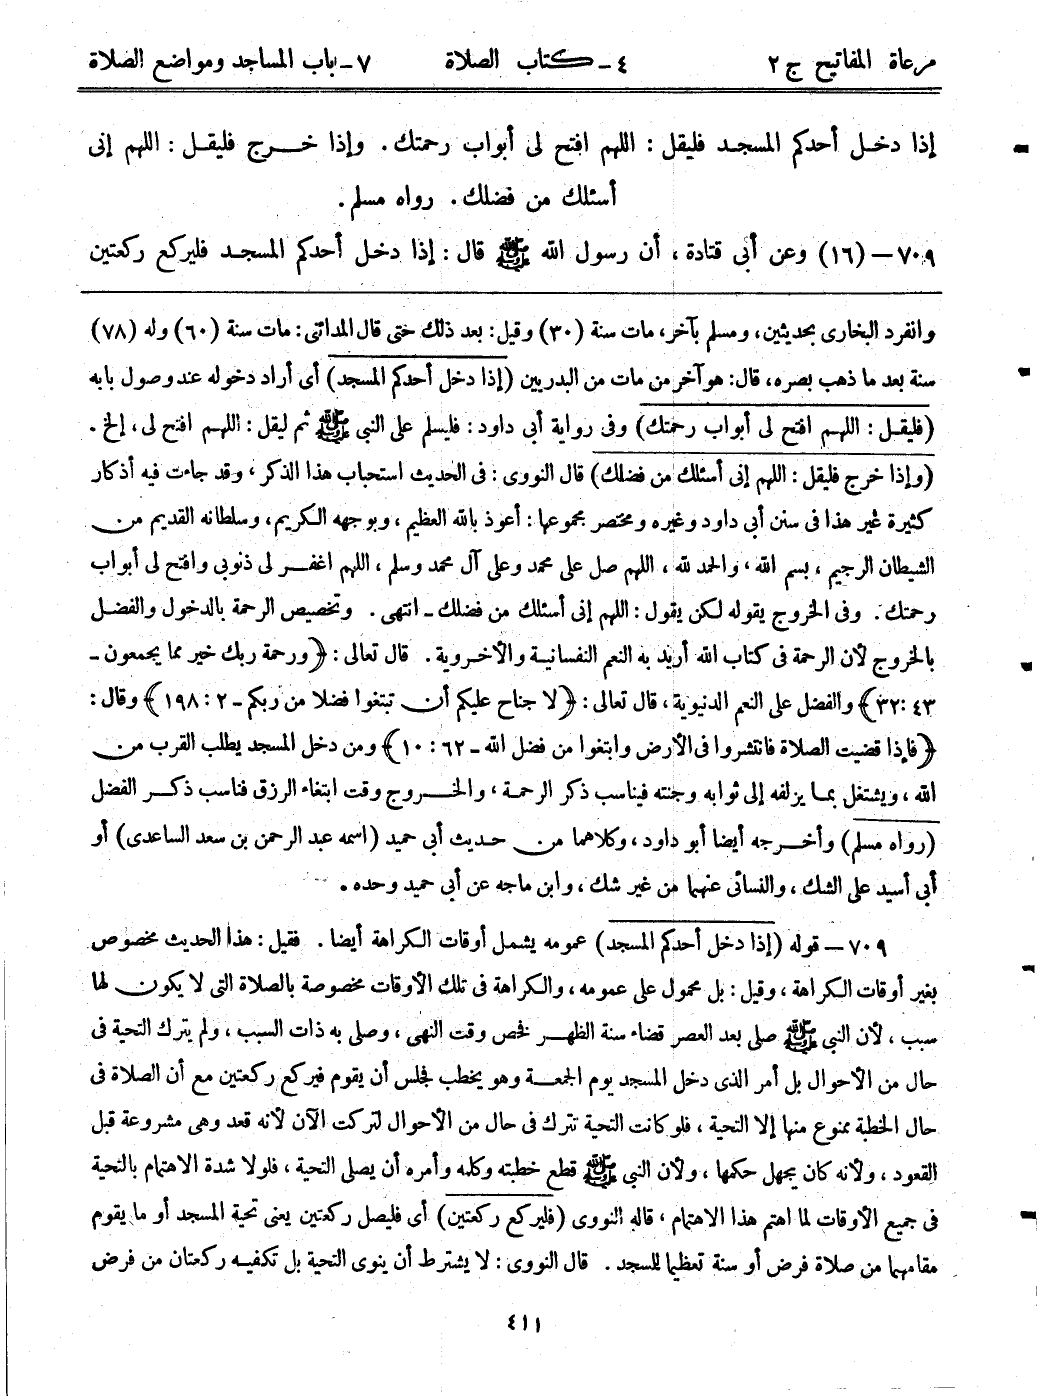 مرعاة المفاتيح ج ٢ ٤ - كتاب الصلاة ٧ - باب المساجد ومواضع الصلاة
إذا دخل أحدكم المسجد فليقل : اللهم افتح لى أبواب رحمتك . وإذا خرج فليقل : اللهم إنى
أسئلك من فضلك . رواه مسلم .
٧٠٩ – (١٦) وعن أبى قتادة ، أن رسول الله ﷺ قال : إذا دخل أحدكم المسجد فليركع ركعتين
وانفرد البخارى بحديثين ، ومسلم بآخر ، مات سنة (٣٠) وقيل : بعد ذلك حتى قال المدائنى : مات سنة (٦٠) وله (٧٨)
سنة بعد ما ذهب بصره ، قال : هو آخر من مات من البدريين (إذا دخل أحدكم المسجد) أى أراد دخوله عند وصول بابه
(فليقل : اللهم افتح لى أبواب رحمتك) وفى رواية أبى داود : فليسلم على النبي ﷺ ثم ليقل : اللهم افتح لى ، إلخ .
(وإذا خرج فليقل : اللهم إنى أسئلك من فضلك) قال النووى : فى الحديث استحباب هذا الذكر ، وقد جاءت فيه أذكار
كثيرة غير هذا فى سنن أبى داود وغيره ومختصر مجموعها : أعوذ بالله العظيم ، وبوجهه الكريم ، وسلطانه القديم من
الشيطان الرجيم ، بسم الله ، والحمد لله ، اللهم صل على محمد وعلى آل محمد وسلم ، اللهم اغفر لى ذنوبى وافتح لى أبواب
رحمتك . وفى الخروج يقوله لكن يقول : اللهم إنى أسئلك من فضلك - انتهى . وتخصيص الرحمة بالدخول والفضل
بالخروج لأن الرحمة فى كتاب الله أريد به النعم النفسانية والأخروية . قال تعالى : ﴿ورحمة ربك خير مما يجمعون -
٤٣ : ٣٢﴾ والفضل على النعم الدنيوية ، قال تعالى : ﴿لا جناح عليكم أن تبتغوا فضلا من ربكم - ٢ : ١٩٨﴾ وقال :
﴿فإذا قضيت الصلاة فانتشروا فى الأرض وابتغوا من فضل الله - ٦٢ : ١٠﴾ ومن دخل المسجد يطلب القرب من
الله ، ويشتغل بما يزلفه إلى ثوابه وجنته فيناسب ذكر الرحمة ، والخروج وقت ابتغاء الرزق فناسب ذكر الفضل
(رواه مسلم) وأخرجه أيضا أبو داود ، وكلاهما من حديث أبي حميد (اسمه عبد الرحمن بن سعد الساعدى) أو
أبى أسيد على الشك ، والنسائى عنهما من غير شك ، وابن ماجه عن أبي حميد وحده .
٧٠٩ – قوله (إذا دخل أحدكم المسجد) عمومه يشمل أوقات الكراهة أيضا . فقيل : هذا الحديث مخصوص
بغير أوقات الكراهة ، وقيل : بل محمول على عمومه ، والكراهة فى تلك الأوقات مخصوصة بالصلاة التى لا يكون لها
سبب ، لأن النبي ﷺ صلى بعد العصر قضاء سنة الظهر فخص وقت النهى ، وصلى به ذات السبب ، ولم يترك التحية فى
حال من الأحوال بل أمر الذى دخل المسجد يوم الجمعة وهو يخطب فجلس أن يقوم فيركع ركعتين مع أن الصلاة فى
حال الخطبة ممنوع منها إلا التحية ، فلو كانت التحية تترك فى حال من الأحوال لتركت الآن لأنه قعد وهى مشروعة قبل
القعود ، ولأنه كان يجهل حكمها ، ولأن النبي ﷺ قطع خطبته وكلمه وأمره أن يصلى التحية ، فلولا شدة الاهتمام بالتحية
فى جميع الأوقات لما اهتم هذا الاهتمام ، قاله النووى (فليركع ركعتين) أى فليصل ركعتين يعنى تحية المسجد أو ما يقوم
مقامهما من صلاة فرض أو سنة تعظيما للمسجد . قال النووى : لا يشترط أن ينوى التحية بل تكفيه ركعتان من فرض
٤١١